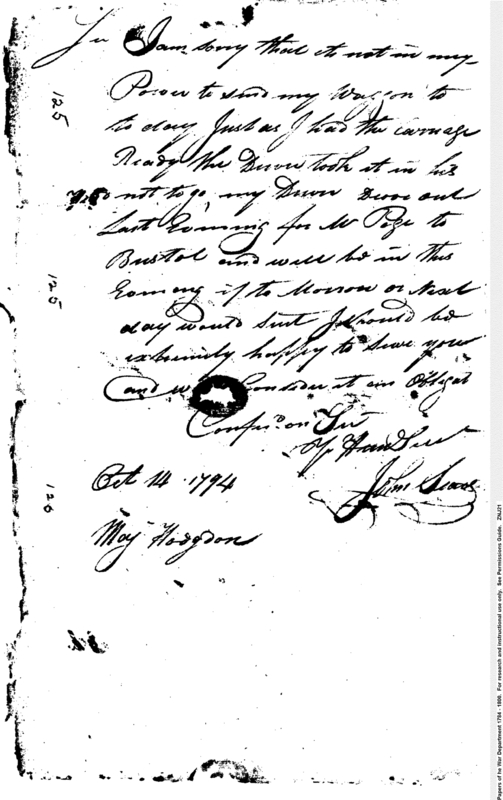 Sir I am sorry that its not in my
Power to send my Waggon to
to day Just as I had the carriage
Ready the Driver took it in his
not to go, my Driver Drove out
Last Evening for Mr Page to
Bristol and will be in this
Evening if to Morrow or Next
day would suit I should be
extremely happy to serve you
and Consider it an Obligat
Confer'd on Sir
Yr Humb Servt
John
Oct 14 1794
Maj Hodgdon
125
125
126
Papers of he War Department 1784 - 1800. For research and instructional use only. See Permissions Guide. ZNJ21